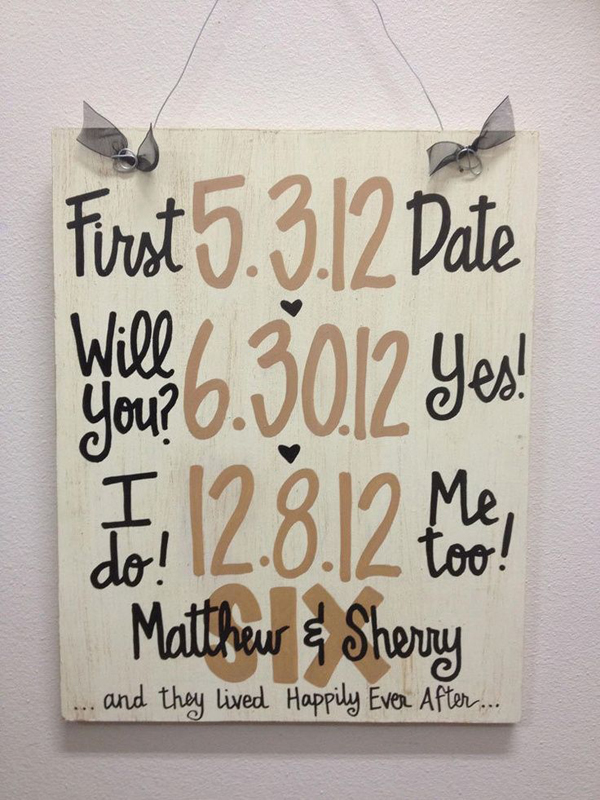 First 5.3.12 Date
Will You? 6.30.12 Yes!
I do! 12.8.12 Me too!
SIX
Matthew & Sherry
...and they lived Happily Ever After...